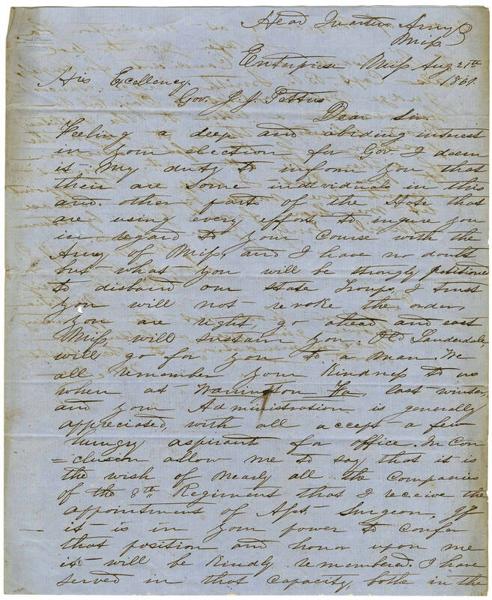 Head Quarters Army
Miss
Enterprise Miss Aug 21st
1861.
His Excellency.
Gov. J. J. Pettus
Dear Sir.
Feeling a deep and abiding interest
in your election for Gov. I deem
it My duty to inform you that
their are some individuals in this
and other parts of the State that
are using every effort to ingure you
in regard to your course with the
Army of Miss, and I have no doubt
but what you will be strongly petitioned
to disband our State Troops, I trust
you will not revoke the order,
you are right go ahead and east
Miss will sustain you. Old Lauderdale
will go for you to a man. We
all remember your Kindness to us
when at Warrington Fa last winter,
and your Administration is generally
appreciated with all accept a few
hungry aspirants for office. In Con
=clusion allow me to say that it is
the wish of nearly all the Companies
of the 8th Regiment that I receive the
appointment of Asst Surgeon, If
it is in your power to confer
that position and honor upon me
it will be Kindly remembered. I have
served in that capacity, both in the